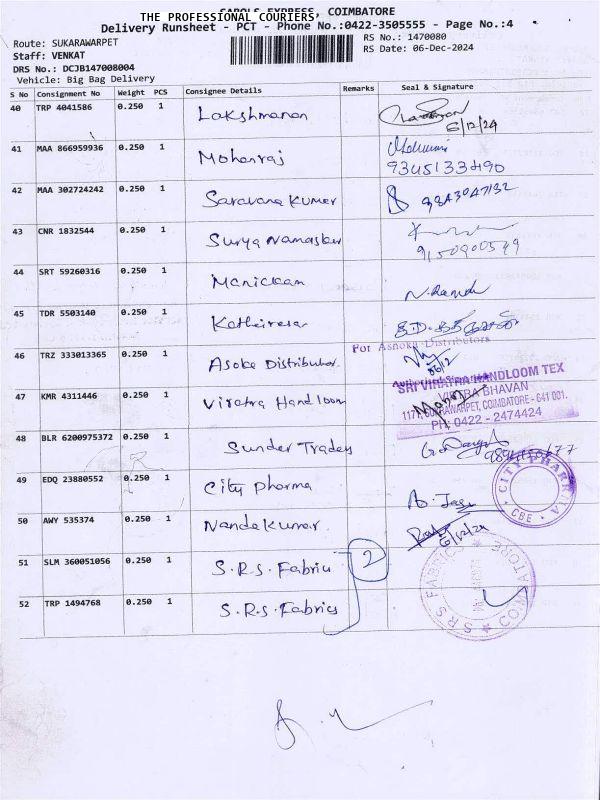 CAROLS EXPRESS, COIMBATORE
THE PROFESSIONAL COURIERS
Delivery Runsheet - PCT - Phone No.:0422-3505555 - Page No.:4
Route: SUKARAWARPET
RS No.: 1470080
Staff: VENKAT
RS Date: 06-Dec-2024
DRS No.: DCJB147008004
Vehicle: Big Bag Delivery
S No Consignment No Weight PCS Consignee Details Remarks Seal & Signature
40 TRP 4041586 0.250 1 Lakshmanan
6/12/24
41 MAA 866959936 0.250 1 Mohanraj
9345133490
42 MAA 302724242 0.250 1 Saravana Kumar 9843047132
43 CNR 1832544 0.250 1 Surya Namaskar
44 SRT 59260316 0.250 1 Manickam
45 TDR 5503140 0.250 1 Katheiresan
For Ashoka Distributors
46 TRZ 333013365 0.250 1 Asoka Distributor 06/12
SRI VIRATRA HANDLOOM TEX
47 KMR 4311446 0.250 1 Viratra Handloom
BHAVAN
SUKRAWARPET, COIMBATORE - 641 001.
PH: 0422 - 2474424
48 BLR 6200975372 0.250 1 Sunder Traders
49 EDQ 23880552 0.250 1 City Pharma
CITY PHARMA
CBE
50 AWY 535374 0.250 1 Nandakumar
6/12/24
51 SLM 360051056 0.250 1 S.R.S. Fabric 2
52 TRP 1494768 0.250 1 S.R.S. Fabrics
S R S FABRICS COIMBATORE